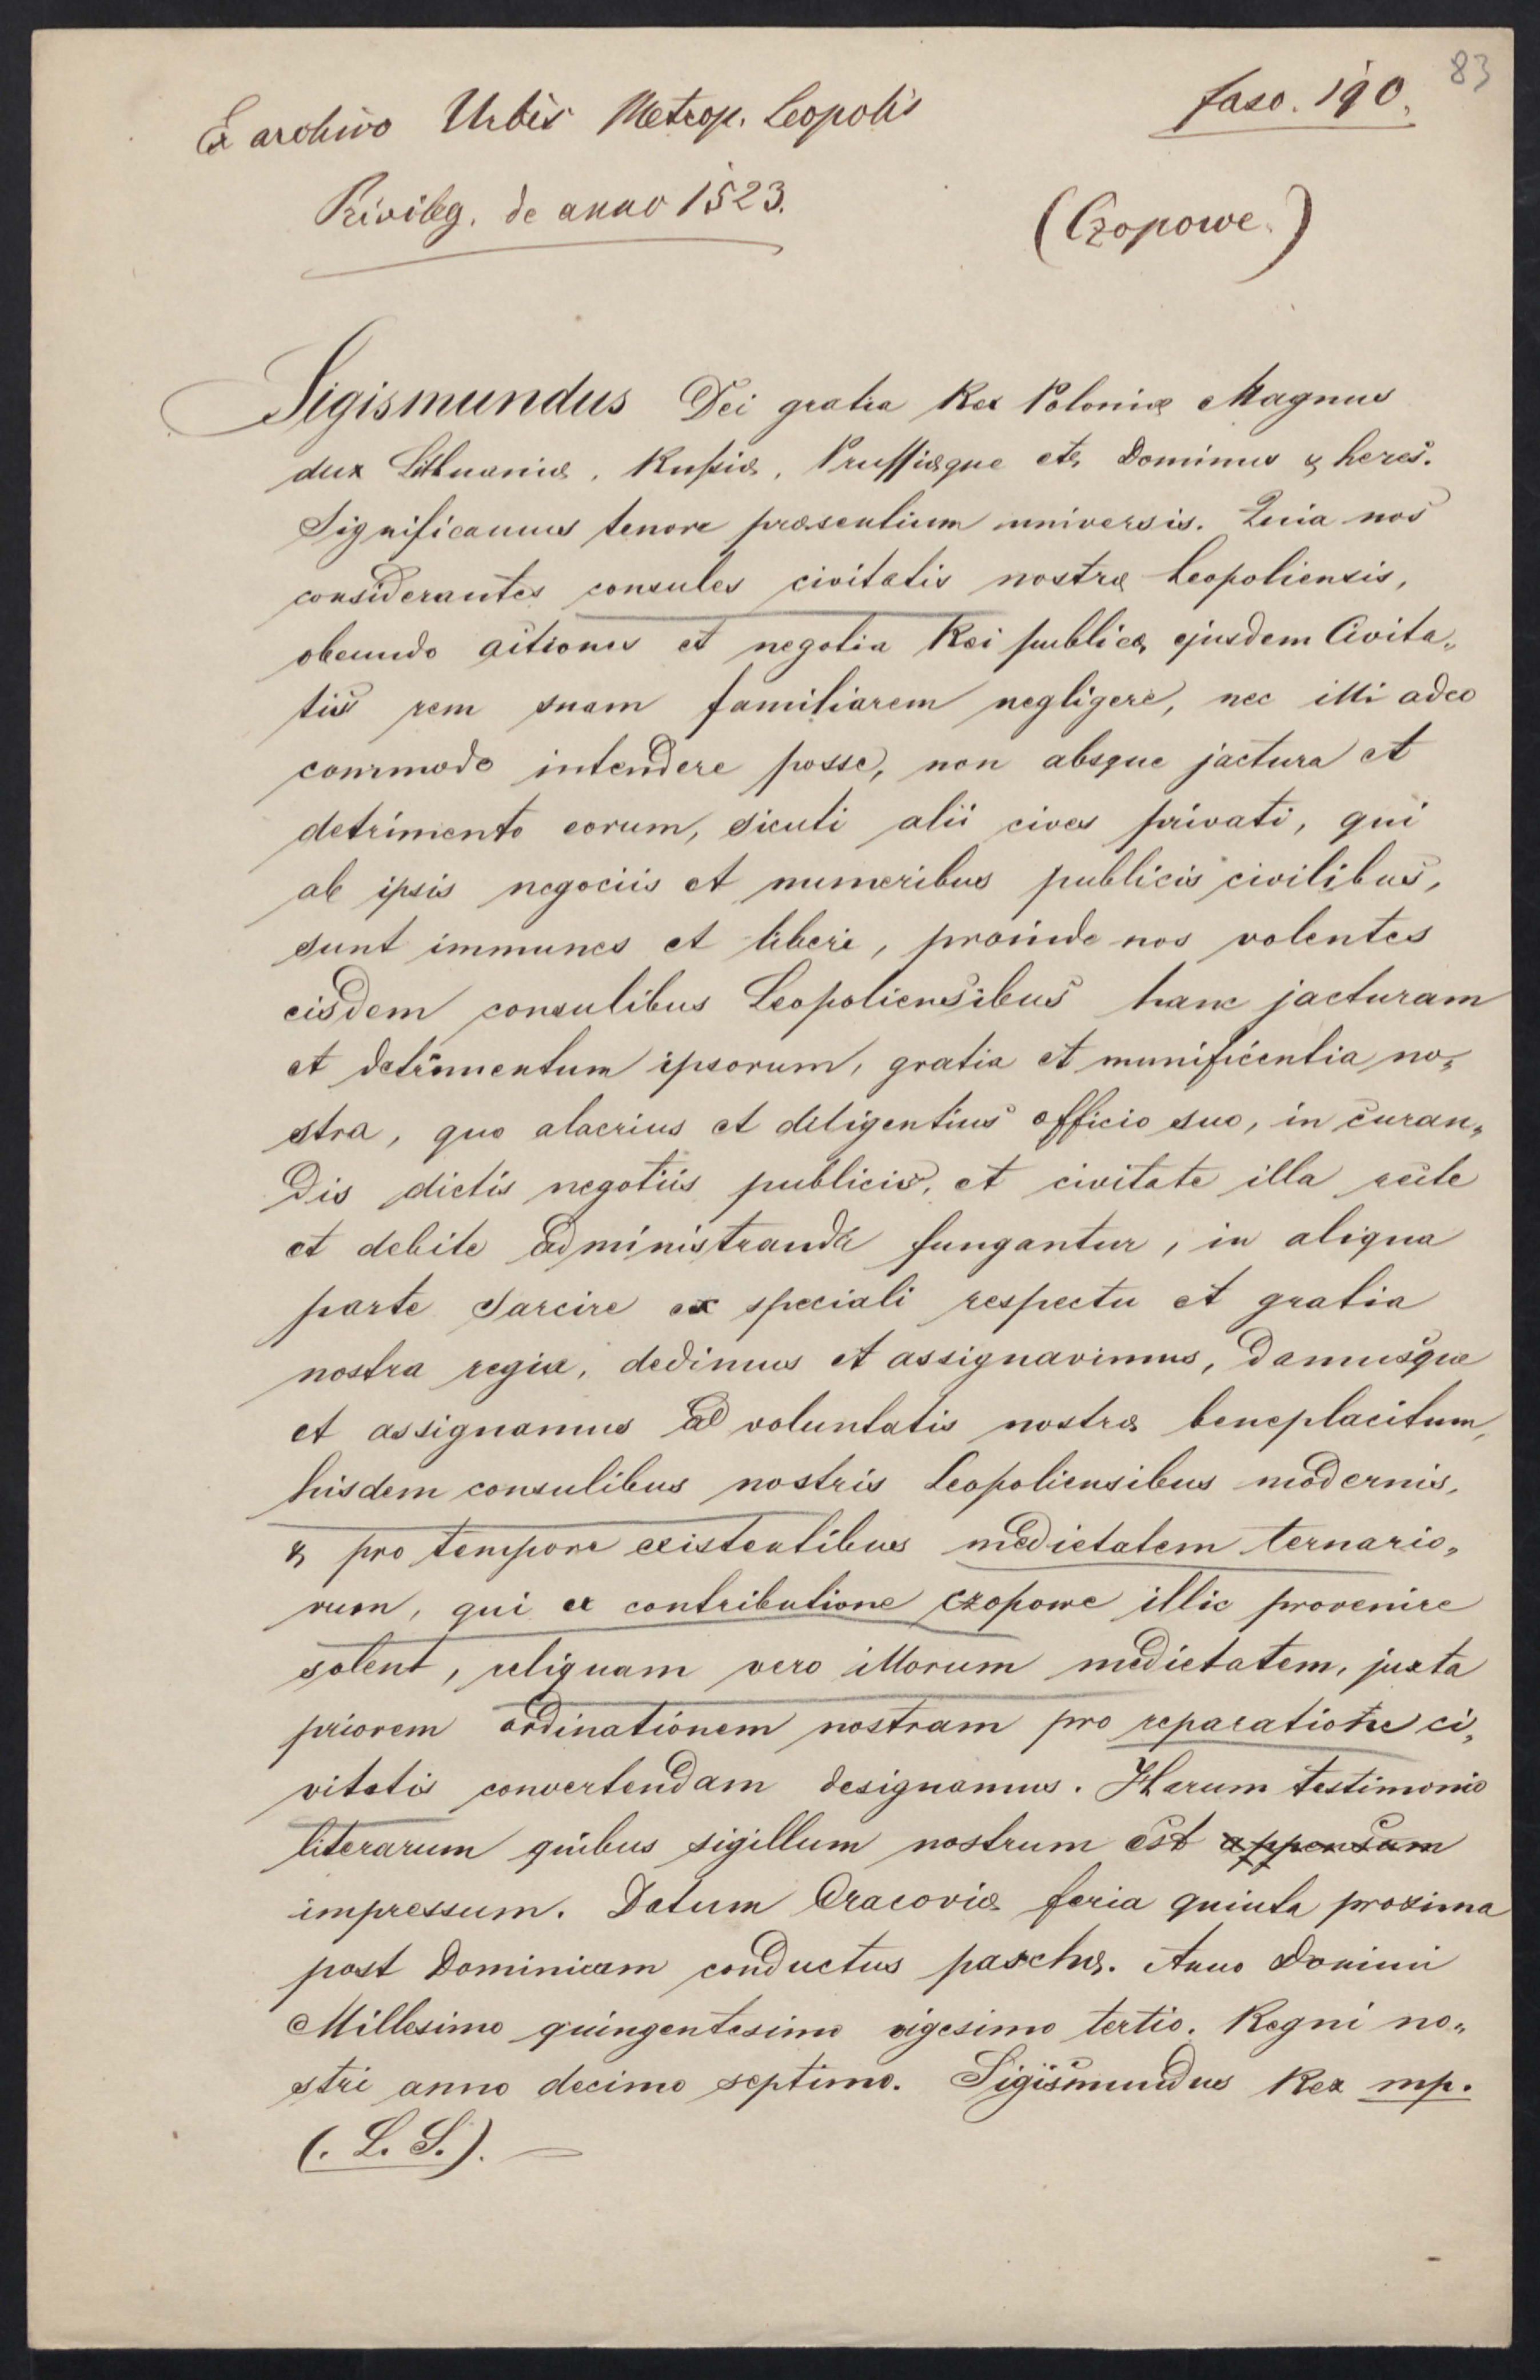 83
Ex archivo Urbis Metrop. Leopolis
fasc. 190.
Privileg. de anno 1523.
(Czopowe.)
Sigismundus Dei gratia Rex Poloniæ Magnus
dux Lithuaniæ, Rußiæ, Prussiæque etc. Dominus & heres.
Significamus tenore præsentium universis. Quia nos
considerantes consules civitatis nostræ Leopoliensis,
obeundo actiones et negotia Rei publicæ ejusdem Civita„
tis rem suam familiarem negligere, nec illi adeo
commode intendere posse, non absque jactura et
detrimento eorum, sicuti alii cives privati, qui
ab ipsis negociis et muneribus publicis civilibus,
sunt immunes et liberi, proinde nos volentes
eisdem consulibus Leopoliensibus hanc jacturam
et detrimentum ipsorum, gratia et munificentia no„
stra, quo alacrius et diligentius officio suo, in curan„
dis dictis negotiis publicis, et civitate illa recte
et debite administranda fungantur, in aliqua
parte sarcire ex speciali respectu et gratia
nostra regia, dedimus et assignavimus, damusque
et assignamus ad voluntatis nostræ beneplacitum,
hisdem consulibus nostris Leopoliensibus modernis,
& pro tempore existentibus medietatem ternario„
rum, qui ex contributione czopowe illic provenire
solent, reliquam vero illorum medietatem, juxta
priorem ordinationem nostram pro reparatione ci„
vitatis convertendam designamus. Harum testimonio
literarum quibus sigillum nostrum est appensum
impressum. Datum Cracoviæ feria quinta proxima
post Dominicam conductus paschæ. Anno Domini
Millesimo quingentesimo vigesimo tertio. Regni no„
stri anno decimo septimo. Sigismundus Rex mp.
(. L. S.). —